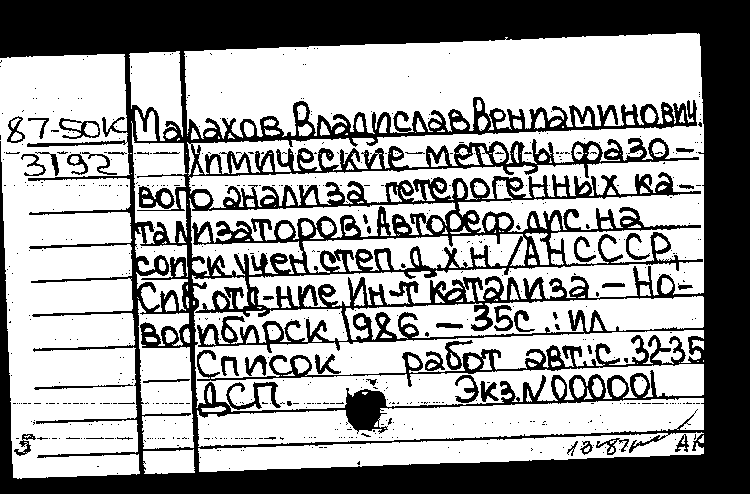 87-50К Малахов, Владислав Вениаминович.
3192 Химические методы фазо-
вого анализа гетерогенных ка-
тализаторов: Автореф. дис. на
соиск. учен. степ. д.х.н. /АН СССР,
Сиб. отд-ние, Ин-т катализа. — Но-
восибирск, 1986. — 35с. : ил.
Список работ авт.: с. 32-35
ДСП. Экз. N 000001.
5 АК